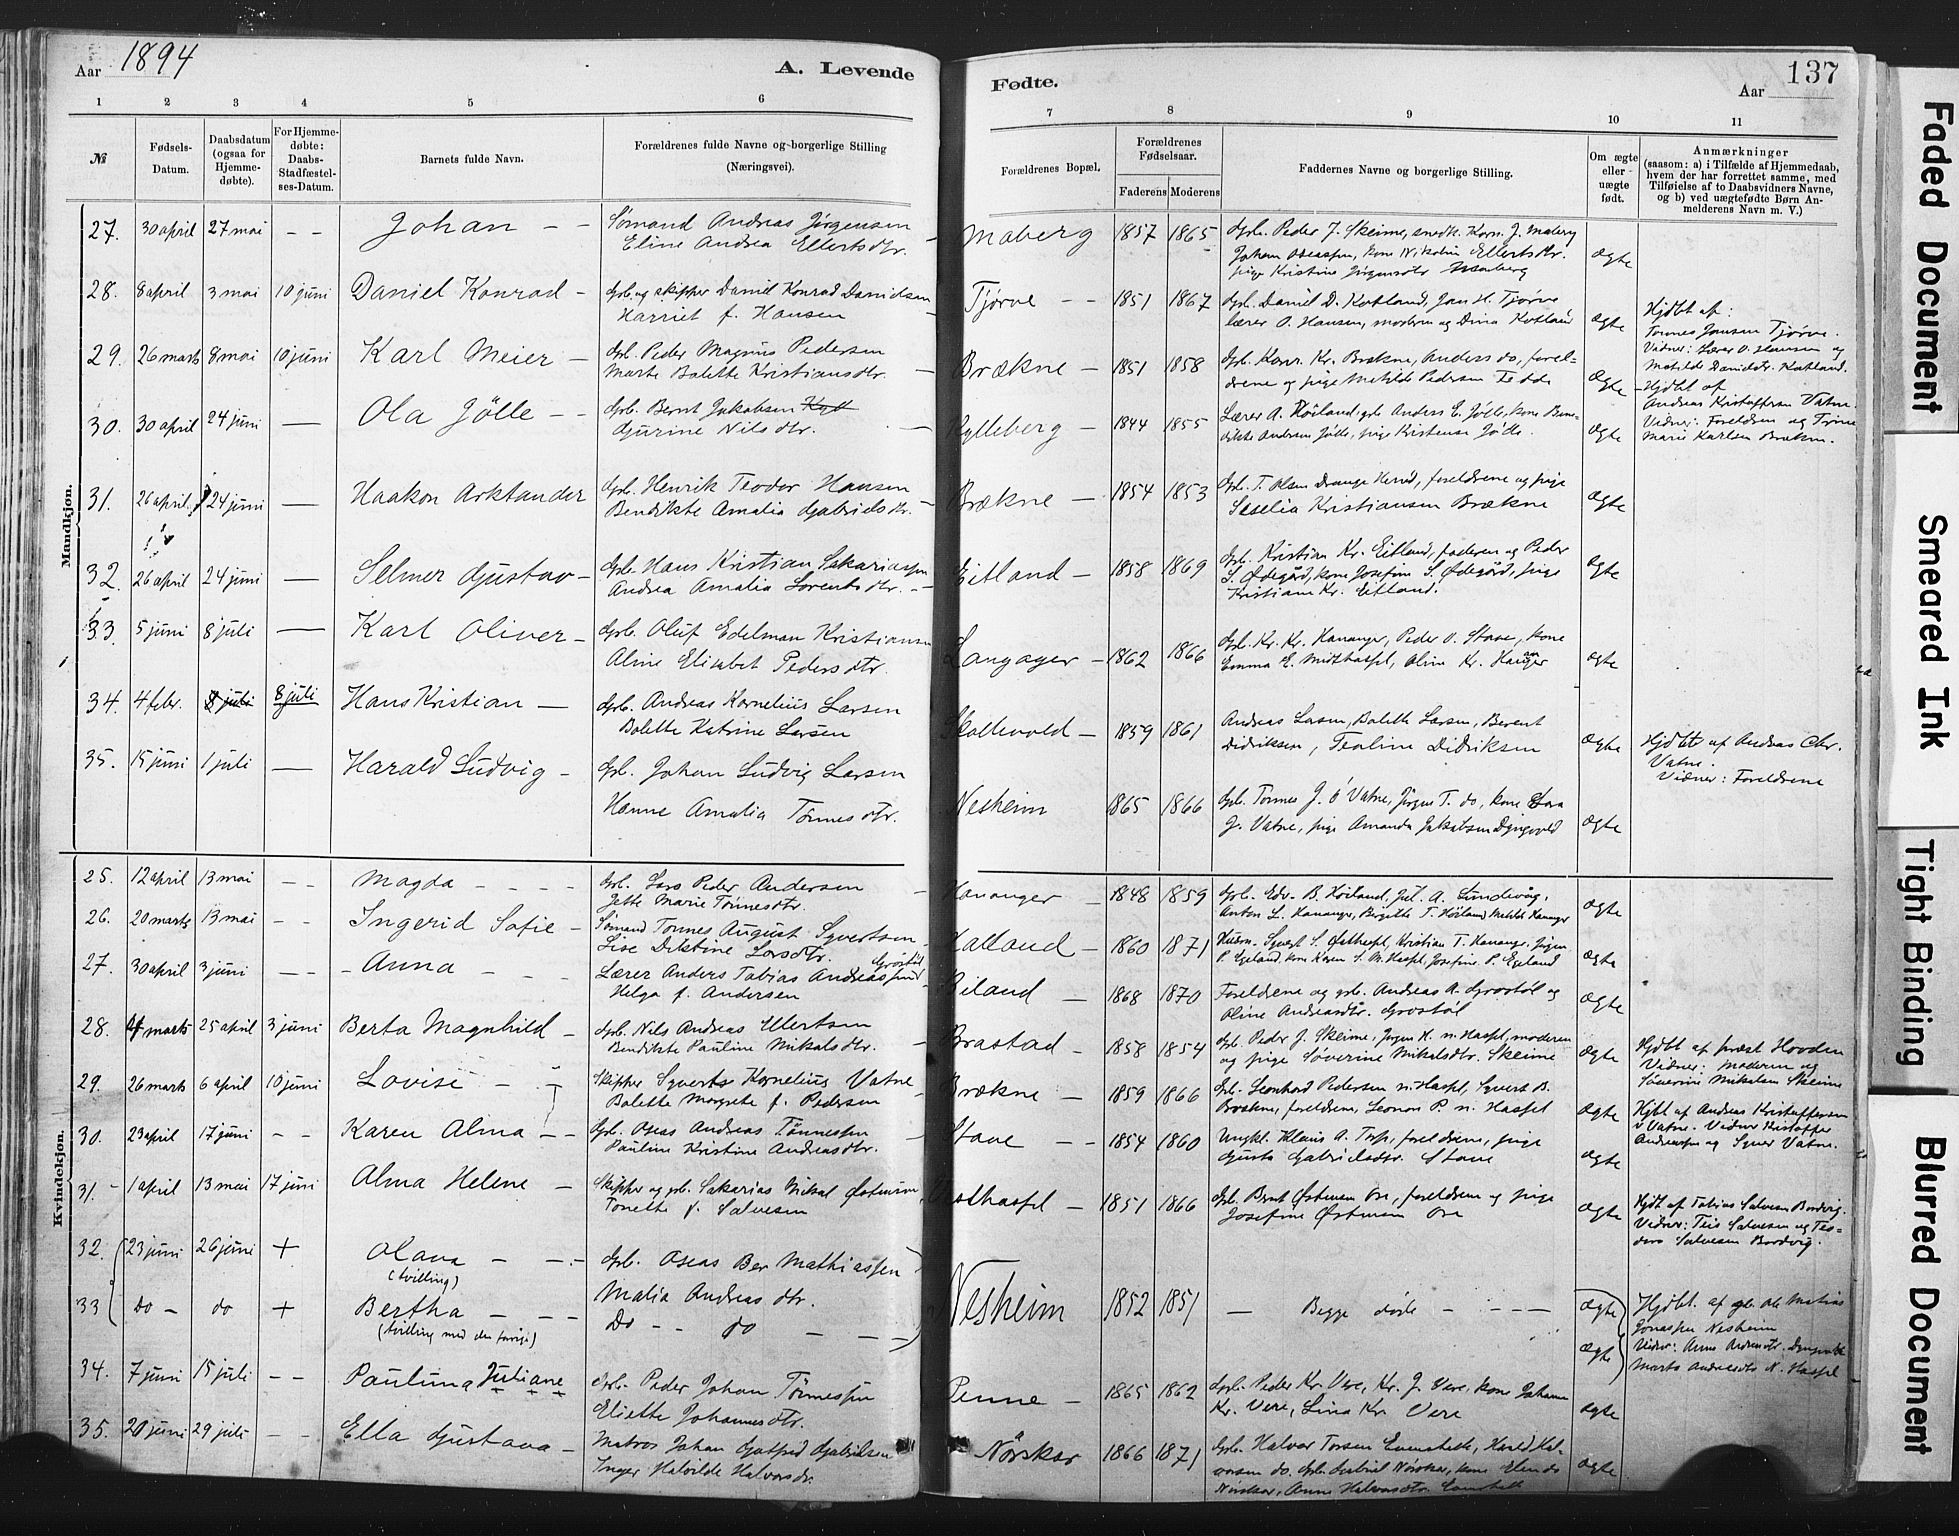 Aar 1894
A. Levende
Fødte.
137
Aar
1 2 3 4 5 6 7 8 9 10 11
№
Fødsels-
Datum.
Daabsdatum
(ogsaa for
Hjemme-
døbte).
For Hjemme-
døbte:
Daabs-
Stadfæstel-
ses-Datum.
Barnets fulde Navn.
Forældrenes fulde Navne og borgerlige Stilling
(Næringsvei).
Forældrenes Bopæl.
Forældrenes
Fødselsaar.
Faderens Moderens
Faddernes Navne og borgerlige Stilling.
Om ægte
eller
uægte
født.
Anmærkninger
(saasom: a) i Tilfælde af Hjemmedaab,
hvem der har forrettet samme, med
Tilføielse af to Daabsvidners Navne,
og b) ved uægtefødte Børn An-
melderens Navn m. V.)
Mandkjøn.
27. 30 april 27 mai – – Johan – – Sømand Andreas Jørgensen
Eline Andrea Ellertsdtr.
Maberg 1857 1865 Gbr. Peder J. Skeime, snedk. Korn. J. Maberg
pige Kristine Jørgensdtr Maaberg
ægte
28. 8 april 3 mai 10 juni Daniel Konrad – Gbr. og skipper Daniel Konrad Danielsen
Harriet f. Hansen
Tjørve – – 1851 1867 Gbr. Daniel D. Kotland, Jon H. Tjørve
lærer O. Hansen, moderen og Dina Kotland
ægte
Hjdbt af:
Tonnes Jonsen Tjørve.
Vidner: Lærer O. Hansen og
Matilde Danielsdtr. Kotland.
29. 26 marts 8 mai 10 juni Karl Meier – Gbr. Peder Magnus Pedersen
Marte Bolette Kristiansdtr.
Brækne – 1851 1858 Gbr. Konr. Kr. Brækne, Anders do, forel-
drene og pige Matilde Pedersen
ægte
Hjdbt af
Andreas Kristoffersen Vatne.
Vidner: Foreldrene og Trine
Marie Karlsen Brækne.
30. 30 april 24 juni — Ola Jølle – – Gbr. Bernt Jakobsen
Gurine Nilsdtr.
Kylleberg – 1844 1855 Lærer A. Høiland, gbr Anders E. Jølle, kone Ben-
dikte Andersen Jølle, pige Kristense Jølle.
ægte
31. 26 april 24 juni — Haakon Arktander Gbr. Henrik Teodor Hansen
Bendikte Amalia Gabrielsdtr.
Brækne – 1854 1853 Gbr. T. Olsen Drange Herad, foreldrene og pige
Seselia Kristiansen Brækne
ægte
32. 26 april 24 juni — Selmer Gustav – Gbr. Hans Kristian Sakariassen
Andrea Amalia Lorentsdtr. –
Eitland – 1858 1869 Gbr. Kristian Kr. Eitland, faderen og Peder
S. Ødegård, kone Josefine S. Ødegård, pige
Kristiane Kr. Eitland.
ægte
33. 5 juni 8 juli — Karl Oliver – Gbr. Oluf Edelman Kristiansen
Aline Elisabet Pedersdtr.
Langager – 1862 1866 Gbr. Kr. Kr. Hananger, Peder O. Stave, kone
Emma E. Midthassel, Oline Kr. Hananger
ægte
34. 4 febr. 8 juli 8 juli Hans Kristian — Gbr. Andreas Kornelius Larsen
Bolette Katrine Larsen
Skollevold – 1859 1861 Andreas Larsen, Bolette Larsen, Berent
Didriksen, Teoline Didriksen
ægte
Hjdbt af Andreas Chr.
Vatne.
Vidner: Foreldrene
35. 15 juni 1 juli — Harald Ludvig – Gbr. Johan Ludvig Larsen
Hanne Amalia Tønnesdtr.
Nesheim 1865 1866 Gbr. Tonnes J. Ö Vatne, Jørgen T. do, kone Sara
J. Vatne, pige Amanda Jakobsen Dyngvold
ægte
Kvindekjøn.
25. 12 april 13 mai – – Magda – – – – Gbr. Lars Peder Andersen
Jette Marie Tönnesdtr.
Hananger – 1848 1859 Gbr. Edv. B. Høiland, Jul. A. Sundevåg,
Anton L. Hananger, Birgitte T. Høiland, Matilde Hananger
ægte
26. 20 marts 13 mai – – Ingerid Sofie – Sømand Tonnes August Syvertsen
Lise Dristine Larsdtr.
Halland – 1860 1871 Husm. Syvert S. Østhassel, Kristian T. Hananger, Jørgen
P. Egeland, kone Karen S. M. Hassel, Josefine P. Egeland
ægte
27. 30 april 3 juni – – – Anna – – – Lærer Anders Tobias Andreassen Grøstöl
Helga f. Andersen
Biland – 1868 1870 Foreldrene og gbr. Andreas A. Grøstøl og
Oline Andreasdtr. Grøstöl
ægte
28. 4 marts 25 april 3 juni Berta Magnhild – Gbr. Nils Andreas Ellertsen
Bendikte Pauline Mikalsdtr.
Brastad – 1858 1854 Gbr. Peder J. Skeime, Jørgen H. n. Hassel, moderen
og pige Søverine Mikalsdtr. Skeime
ægte
Hjdbt af præst Hovden
Vidner: moderen og
Søverine Mikalsen Skeime
29. 26 marts 6 april 10 juni Lovise – – Skipper Syverts Kornelius Vatne
Bolette Margrete f. Pedersen
Brækne – 1859 1866 Gbr. Leonhard Pedersen n. Hassel, Syvert B.
Brækne, foreldrene, Leonore P. n. Hassel
ægte
Hjbt af Andreas Kristoffersen
Vatne. Vidner Kristoffer
Andreassen og Syver Vatne.
30. 23 april 17 juni – – Karen Alma – – Gbr. Oseas Andreas Tønnessen
Pauline Kristine Andreasdtr.
Stave – – 1854 1860 Ungk. Klaus A. Torp, foreldrene, pige
Gusta Gabrielsdtr. Stave
ægte
31. 1 april 13 mai 17 juni Alma Helene – Skipper og gbr. Sakarias Mikal Østensen,
Tonette f. Salvesen
Østhassel – 1851 1866 Gbr. Bernt Østensen Ore, foreldrene og pige
Josefine Østensen Ore
ægte
Hjdt af Tobias Salvesen Bordvig.
Vidner: Teis Salvesen og Teo-
dora Salvesen Bordvig.
32. 23 juni 26 juni + Olava – – –
(tvilling)
Gbr. Oseas Ber Mathiassen
Malia Andreasdtr.
33 do – do + Bertha – – –
(tvilling med den forrige)
Do – – do – –
Nesheim 1852 1851 – Begge døde – – – –
ægte
ægte
Hjdbt. af gbr Ole Matias
Jonassen Nesheim
Vidner: Anne Andreasdtr. Dyngvold
Marta Andreasdtr N. Hassel
34. 7 juni 15 juli – – Paulina Juliane Gbr. Peder Johan Tønnessen
Eliette Johannesdtr.
Penne – 1865 1862 Gbr. Peder Kr. Vere, Kr. J. Vere, kone Johanne
Kr. Vere, Lina Kr. Vere
ægte
35. 20 juni 29 juli – – Ella Gustava – Matros Johan Gotfred Gabrielsen
Inger Halvilde Halvorsdr.
Nörskar 1866 1871 Gbr. Halvor Torsen Eunestvedt, Harald Hal-
vorsen do. Gbr. Gabriel Nörskar, kone Elen do
Nörskar, Anne Halvorsdtr.
ægte
Faded Document
Smeared Ink
Tight Binding
Blurred Document